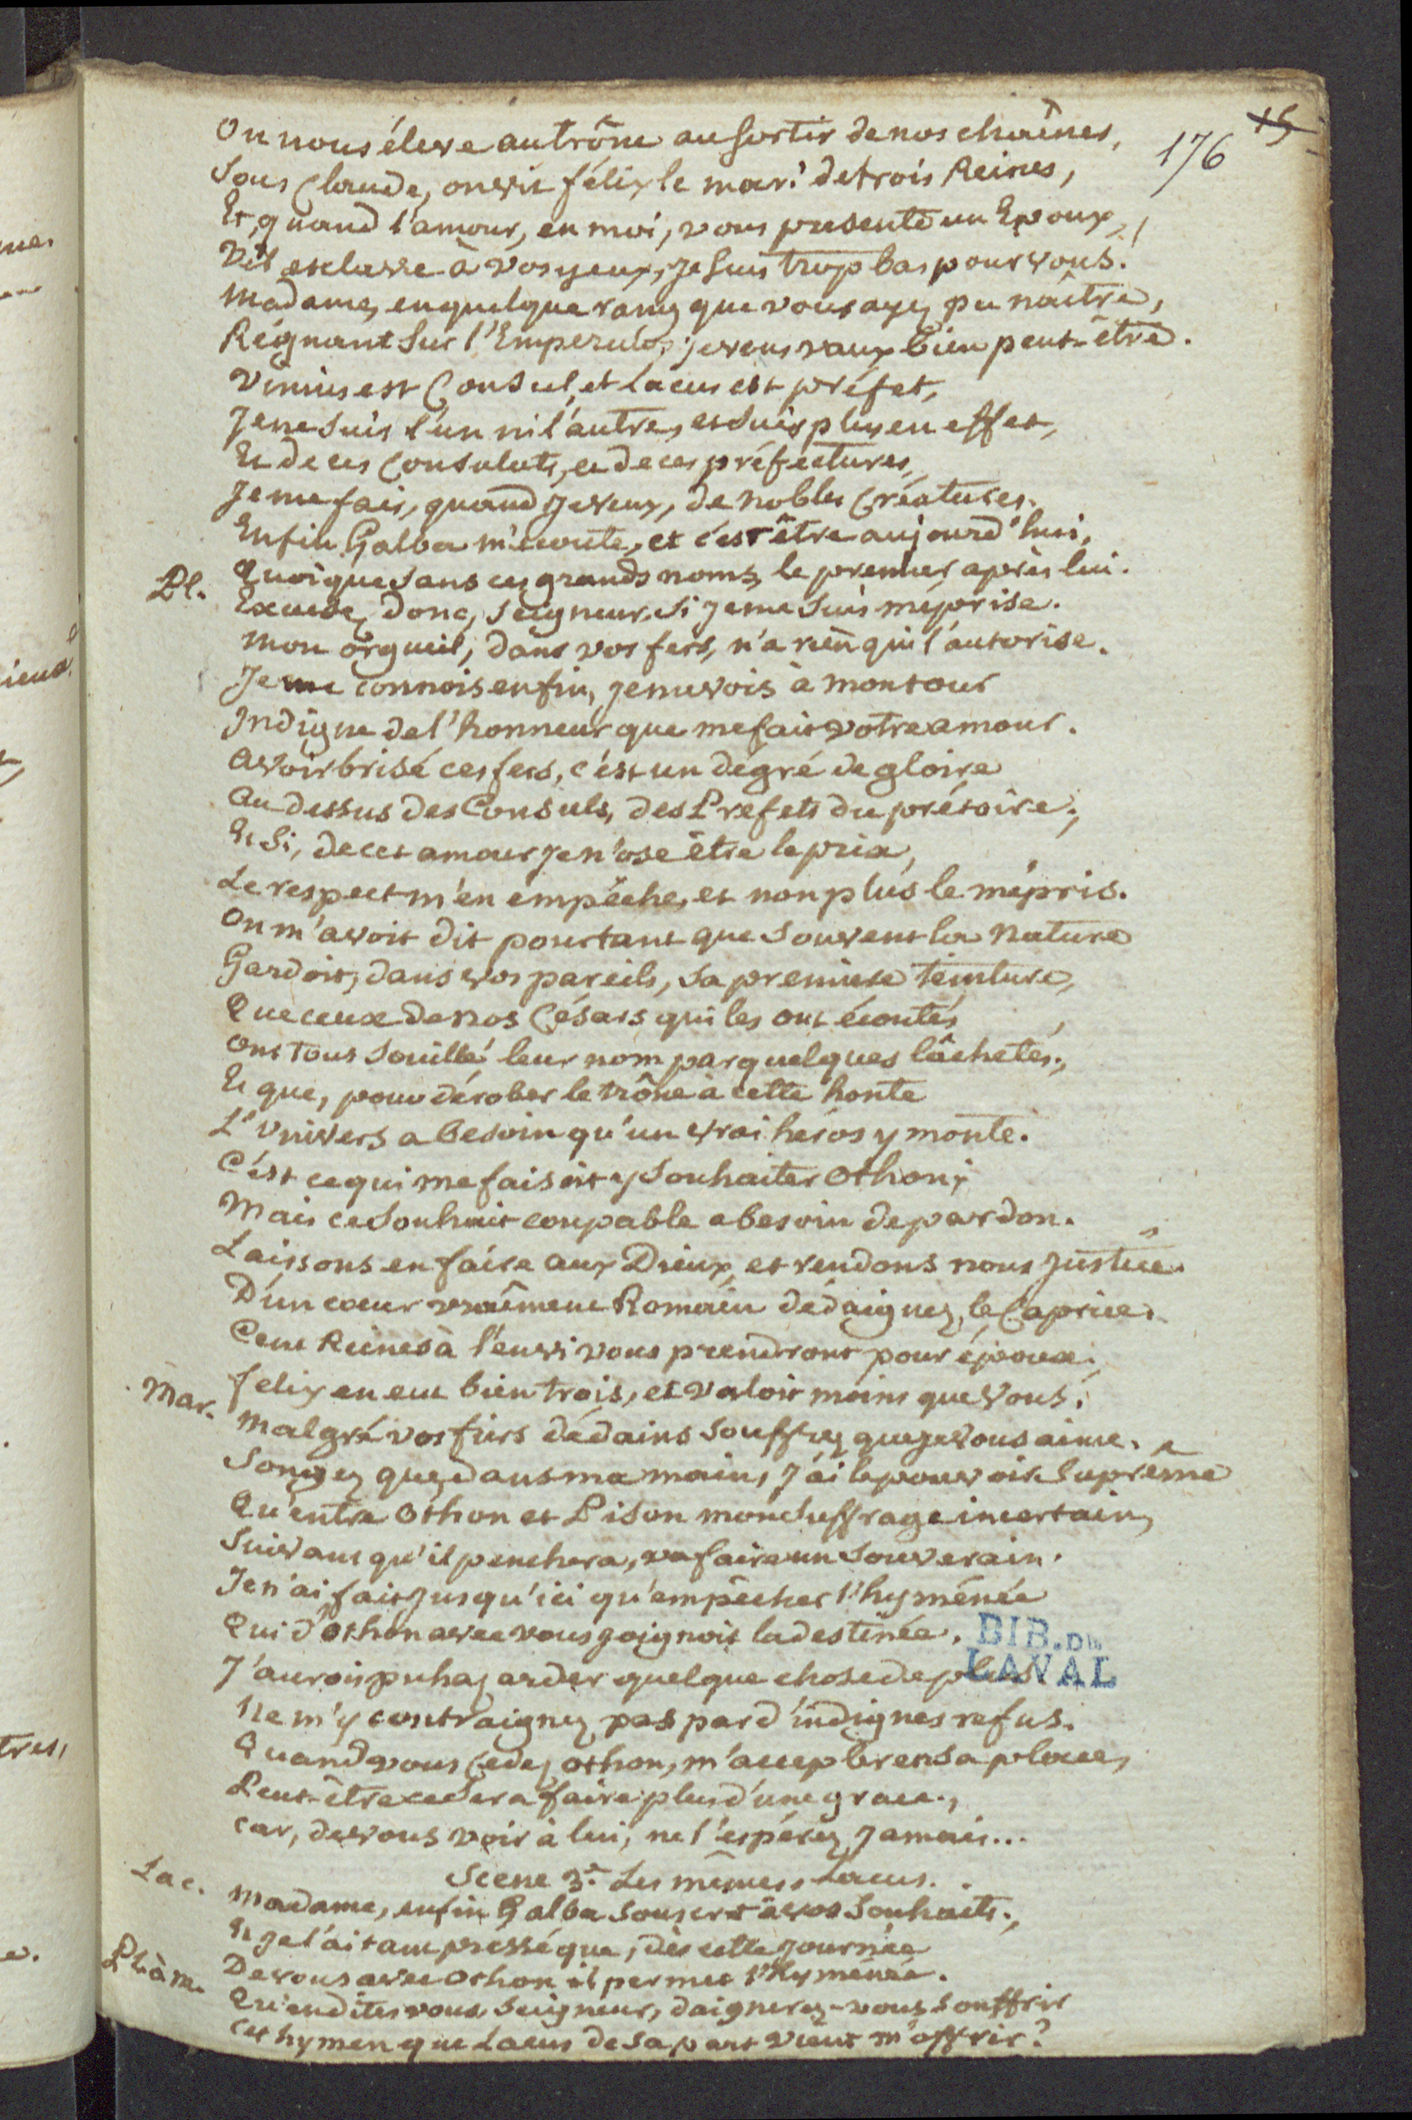 15
176
On nous éleve au trône au sortir de nos chaînes,
Sous Claude, on vit félix le mari de trois Reines,
Et, quand l'amour, en moi, vous presente un Epoux,
Vil esclave à vos yeux, je suis trop bas pour vous!
Madame, en quelque rang que vous ayez pu naître,
Régnant sur l'Empereur, je vous vaux bien peut-être.
Vinius est Consul, et Lacus est préfet,
Je ne suis l'un ni l'autre, et suis plus en effet,
Et de ces Consulats, et de ces préfectures,
Je me fais, quand je veux, de nobles Créatures.
Enfin Galba m'écoute, et c'est être aujourd'hui,
Quoique sans ces grands noms, le premier après lui.
Pl. Excusez donc, Seigneur, si je me suis méprise.
Mon orgueil, dans vos fers, n'a rien qui l'autorise.
Je me connois enfin, je me vois à mon tour
Indigne de l'honneur que me fait votre amour.
Avoir brisé ces fers, c'est un dégré de gloire
Au dessus des Consuls, des Prefets du prétoire;
Et si, de cet amour je n'ose être le prix,
Le respect m'en empêche, et non plus le mépris.
On m'avoit dit pourtant que souvent la Nature
Gardoit, dans vos pareils, sa premiere teinture,
Que ceux de nos Césars qui les ont écoutés
Ont tous souillé leur nom par quelques lâchetés;
Et que, pour dérober le trône à cette honte
L'Univers a besoin qu'un vrai héros y monte.
C'est ce qui me faisoit y souhaiter Othon;
Mais ce souhait coupable a besoin de pardon.
Laissons en faire aux Dieux, et rendons nous justice.
D'un coeur vraîment Romain dédaignez le Caprice.
Cent Reines à l'envi vous prendront pour époux;
félix en eut bien trois, et valoit moins que vous.
Mar. Malgré vos fiers dédains souffrez que je vous aime.
Songez que, dans ma main, j'ai le pouvoir suprême
Qu'entre Othon et Pison mon suffrage incertain,
Suivant qu'il penchera, va faire un Souverain.
Je n'ai fait jusqu'ici qu'empêcher l'hyménée
Qui d'Othon avec vous joignoit la destinée.
J'aurois pu hazarder quelque chose de plus
Ne m'y contraignez pas par d'indignes refus.
Quand vous cedez Othon, m'accepter en sa place,
Peut-être ce sera faire plus d'une grace;
car, de vous voir à lui, ne l'espérez jamais...
Scene 3e. Les mêmes, Lacus.
Lac. Madame, enfin Galba souscrit à vos souhaits;
Et je l'ai tant pressé que, dès cette journée
De vous avec Othon il permet l'hyménée.
Pl. à M. Qu'en dites vous Seigneur, daignerez-vous souffrir
Cet hymen que Lacus de sa part vient m'offrir?
BIB. DE
LAVAL